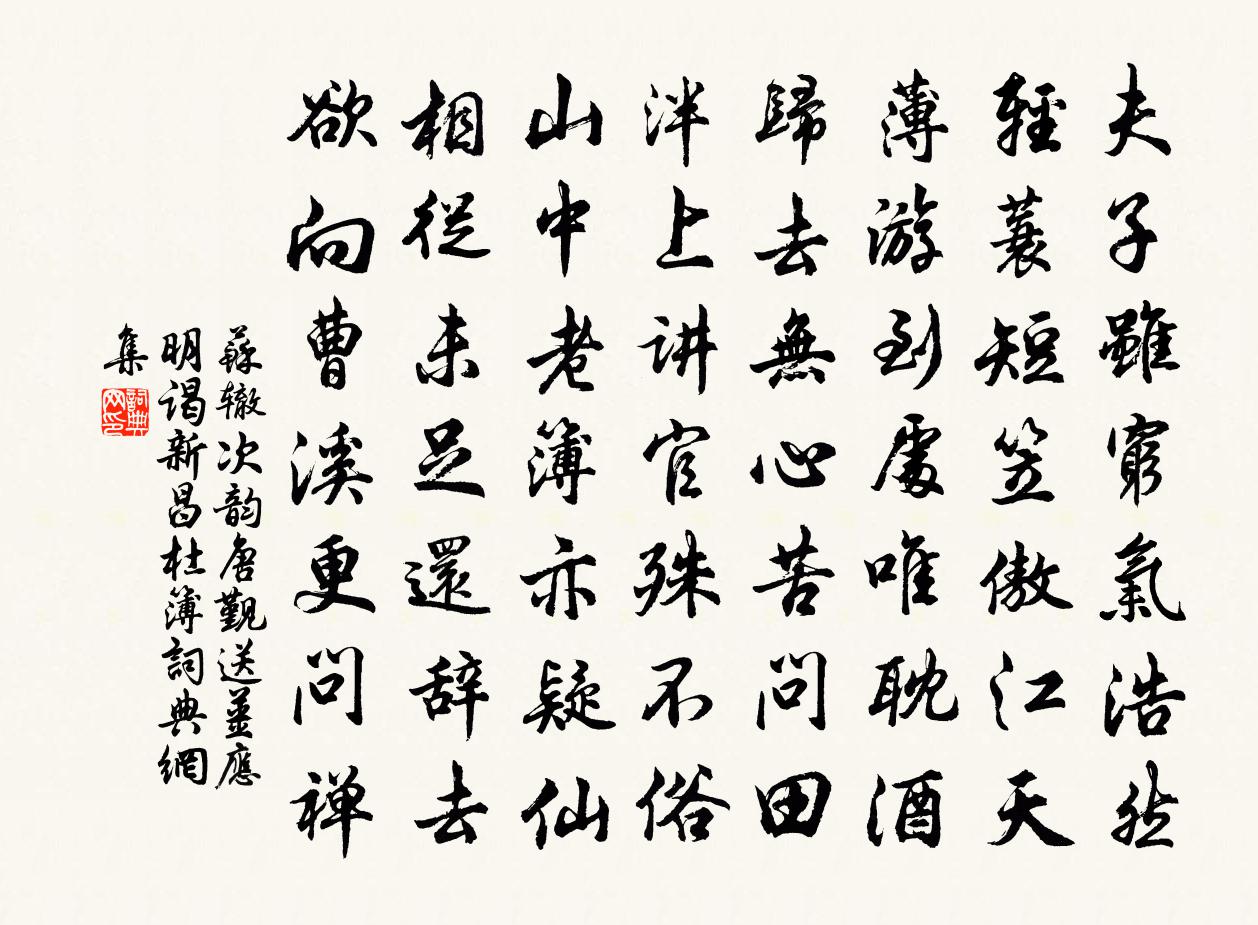 夫子雖窮氣浩然
輕蓑短笠傲江天
薄游到處唯耽酒
歸去無心苦問田
泮上讲官殊不俗
山中老簿亦疑仙
相從未足還辞去
欲向曹溪更問禅
蘇辙次韵唐覲送薑應
明谒新昌杜簿詞典網
集
詞典网印